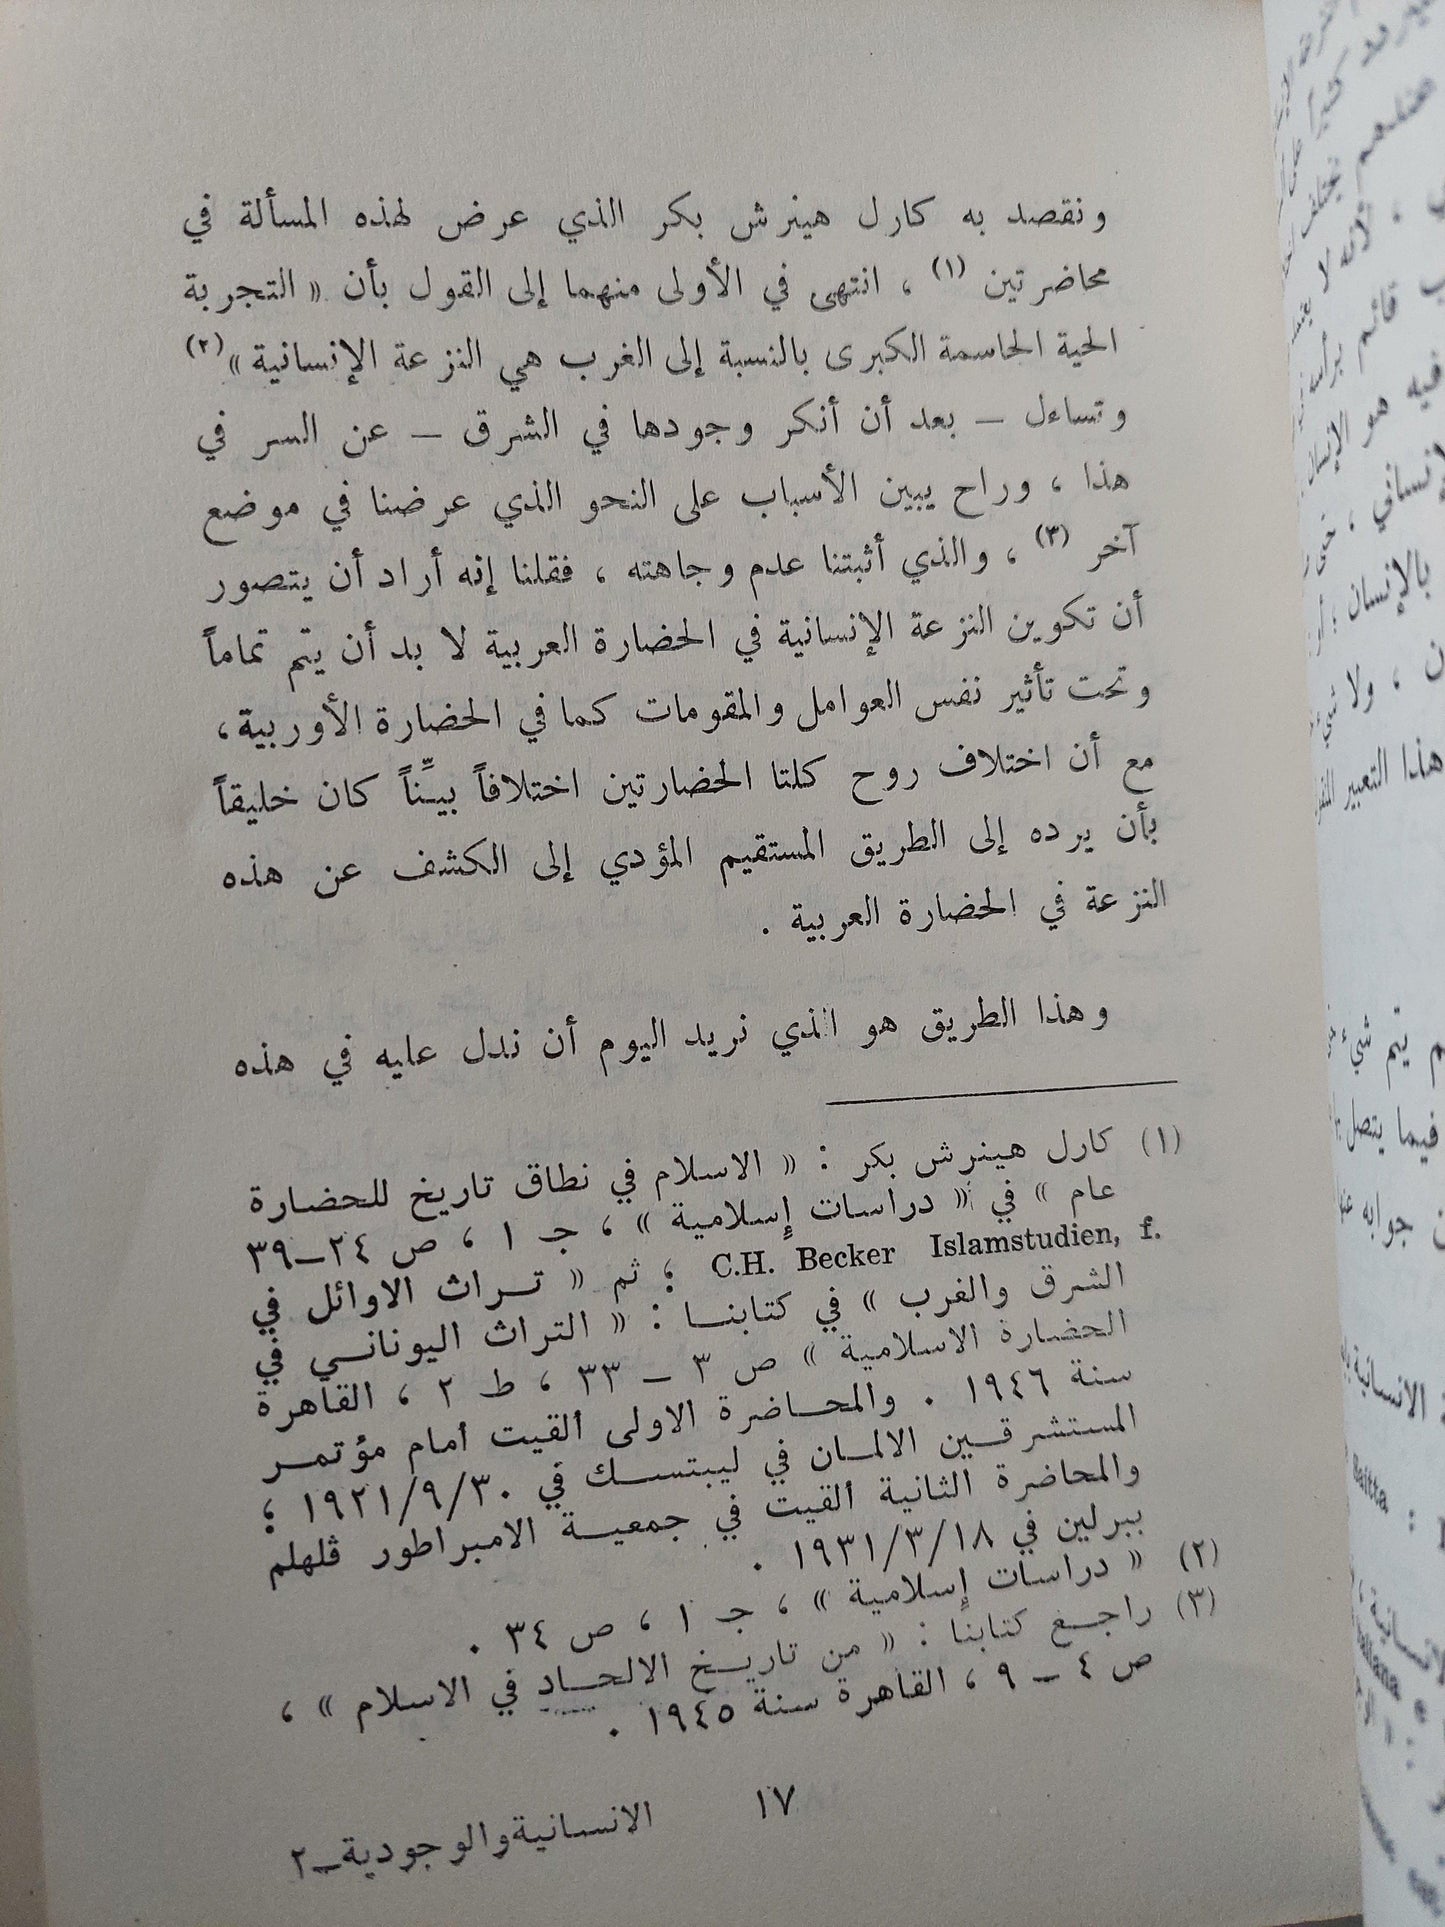 ونقصد به كارل هينرش بكر الذي عرض لهذه المسألة في
محاضرتين (١) ، انتهى في الأولى منهما إلى القول بأن « التجربة
الحية الحاسمة الكبرى بالنسبة إلى الغرب هي النزعة الإنسانية » (٢)
وتساءل – بعد أن أنكر وجودها في الشرق – عن السر في
هذا ، وراح يبين الأسباب على النحو الذي عرضنا في موضع
آخر (٣) ، والذي أثبتنا عدم وجاهته ، فقلنا إنه أراد أن يتصور
أن تكوين النزعة الإنسانية في الحضارة العربية لا بد أن يتم تماماً
وتحت تأثير نفس العوامل والمقومات كما في الحضارة الأوربية ،
مع أن اختلاف روح كلتا الحضارتين اختلافاً بيِّناً كان خليقاً
بأن يرده إلى الطريق المستقيم المؤدي إلى الكشف عن هذه
النزعة في الحضارة العربية .
وهذا الطريق هو الذي نريد اليوم أن ندل عليه في هذه
(١) كارل هينرش بكر : « الاسلام في نطاق تاريخ للحضارة
عام » في « دراسات إسلامية » ، جـ ١ ، ص ٢٤–٣٩
C.H. Becker Islamstudien, f. ؛ ثم « تراث الاوائل في
الشرق والغرب » في كتابنا : « التراث اليوناني في
الحضارة الاسلامية » ص ٣ – ٣٣ ، ط ٢ ، القاهرة
سنة ١٩٤٦ . والمحاضرة الاولى ألقيت أمام مؤتمر
المستشرقين الالمان في ليبتسك في ١٩٢١/٩/٣٠ ؛
والمحاضرة الثانية ألقيت في جمعية الامبراطور ڤلهلم
ببرلين في ١٩٣١/٣/١٨ .
(٢) « دراسات إسلامية » ، جـ ١ ، ص ٣٤ .
(٣) راجع كتابنا : « من تاريخ الالحاد في الاسلام » ،
ص ٤ – ٩ ، القاهرة سنة ١٩٤٥ .
١٧
الانسانية والوجودية–٢